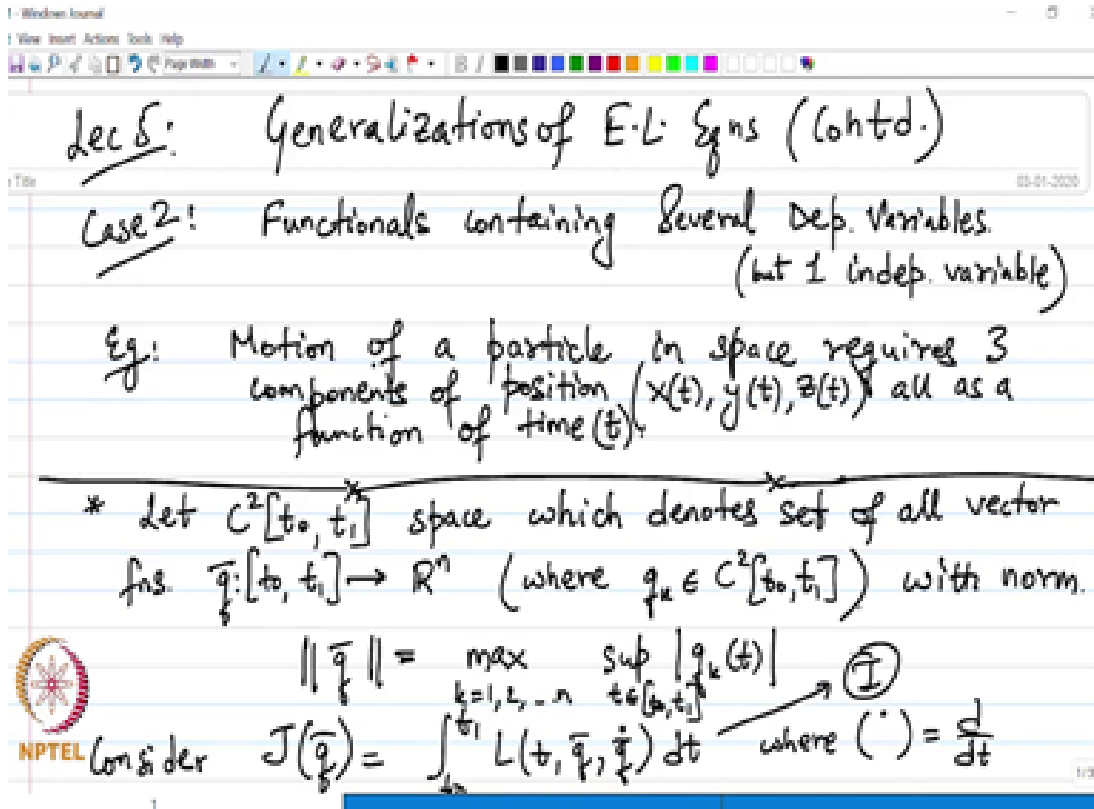 - Windows Journal
View Insert Actions Tools Help
Page Width
B I
Lec 5: Generalizations of E.L. Eqns (Contd.)
Title
03-01-2020
Case 2: Functionals containing Several Dep. Variables.
(but 1 indep. variable)
Eg: Motion of a particle in space requires 3
components of position (x(t), y(t), z(t)) all as a
function of time (t).
* Let C²[t₀, t₁] space which denotes set of all vector
fns. q̄:[t₀, t₁] → Rⁿ (where qₖ ∈ C²[t₀, t₁]) with norm.
||q̄|| = max sup |qₖ(t)| I
k=1,2,..n t∈[t₀,t₁]
NPTEL Consider J(q̄) = ∫_{t₀}^{t₁} L(t, q̄, q̄̇) dt where (˙) = d/dt
1